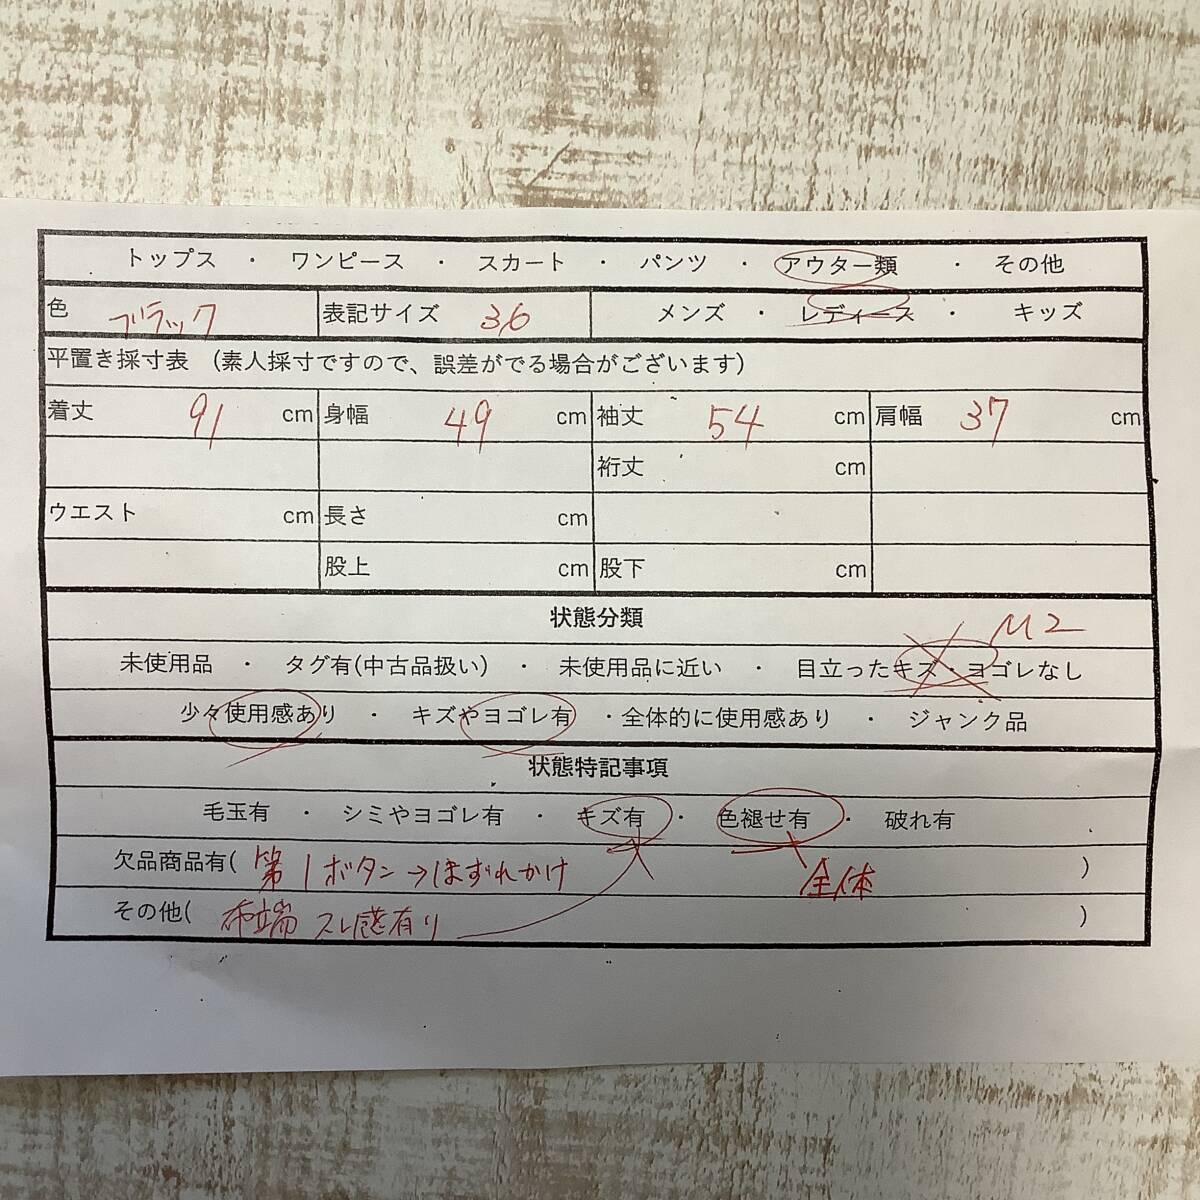 トップス ・ ワンピース ・ スカート ・ パンツ ・ アウター類 ・ その他
色 ブラック 表記サイズ 36 メンズ ・ レディース ・ キッズ
平置き採寸表 (素人採寸ですので、誤差がでる場合がございます)
着丈 91 cm 身幅 49 cm 袖丈 54 cm 肩幅 37 cm
裄丈 cm
ウエスト cm 長さ cm
股上 cm 股下 cm
状態分類
M2
未使用品 ・ タグ有(中古品扱い) ・ 未使用品に近い ・ 目立ったキズ・ヨゴレなし
少々使用感あり ・ キズやヨゴレ有 ・全体的に使用感あり ・ ジャンク品
状態特記事項
毛玉有 ・ シミやヨゴレ有 ・ キズ有 ・ 色褪せ有 ・ 破れ有
欠品商品有( 第1ボタン→ほずれかけ 全体 )
その他( 布端 スレ感有り )